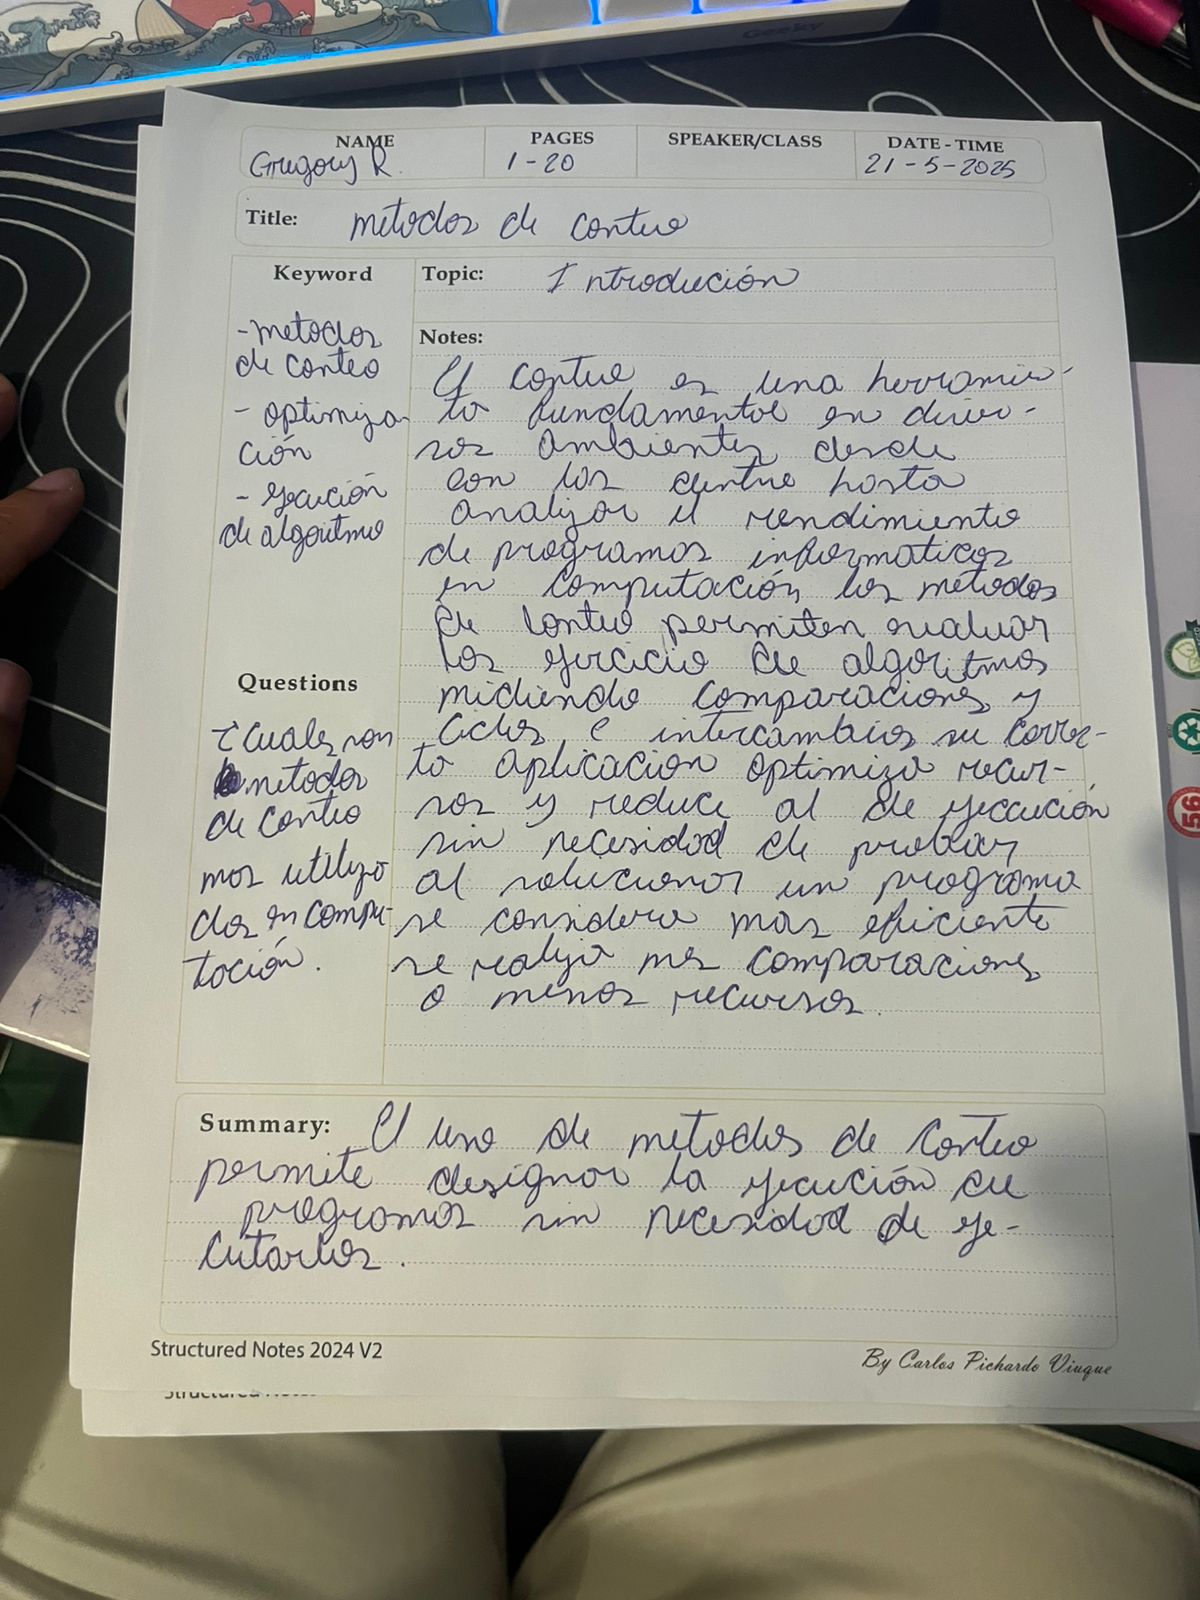 Geeky
NAME PAGES SPEAKER/CLASS DATE - TIME
Gregory R. 1 - 20 21 - 5 - 2025
Title: metodos de conteo
Keyword
- metodos
de conteo
- optimiza
ción
- ejecución
de algoritmo
Questions
¿Cuales son
metodos
de conteo
mas utiliza
dos en compu-
tación.
Topic: Introdución
Notes:
El conteo es una herramien-
ta fundamental en diver-
sos ambientes desde
con los hasta
analizar el rendimiento
de programas informaticos
en computación los metodos
de conteo permiten evaluar
los ejercicio de algoritmos
midiendo comparaciones y
ciclos e intercambios su correc-
ta aplicacion optimiza recur-
sos y reduce al de ejecución
sin necesidad de probar
al solucionar un programa
se considera mas eficiente
se realiza mes comparaciones
o menos recursos.
Summary: El uso de metodos de conteo
permite designar la ejecución de
programas sin necesidad de eje-
cutarlos.
Structured Notes 2024 V2
By Carlos Pichardo Viuque
56